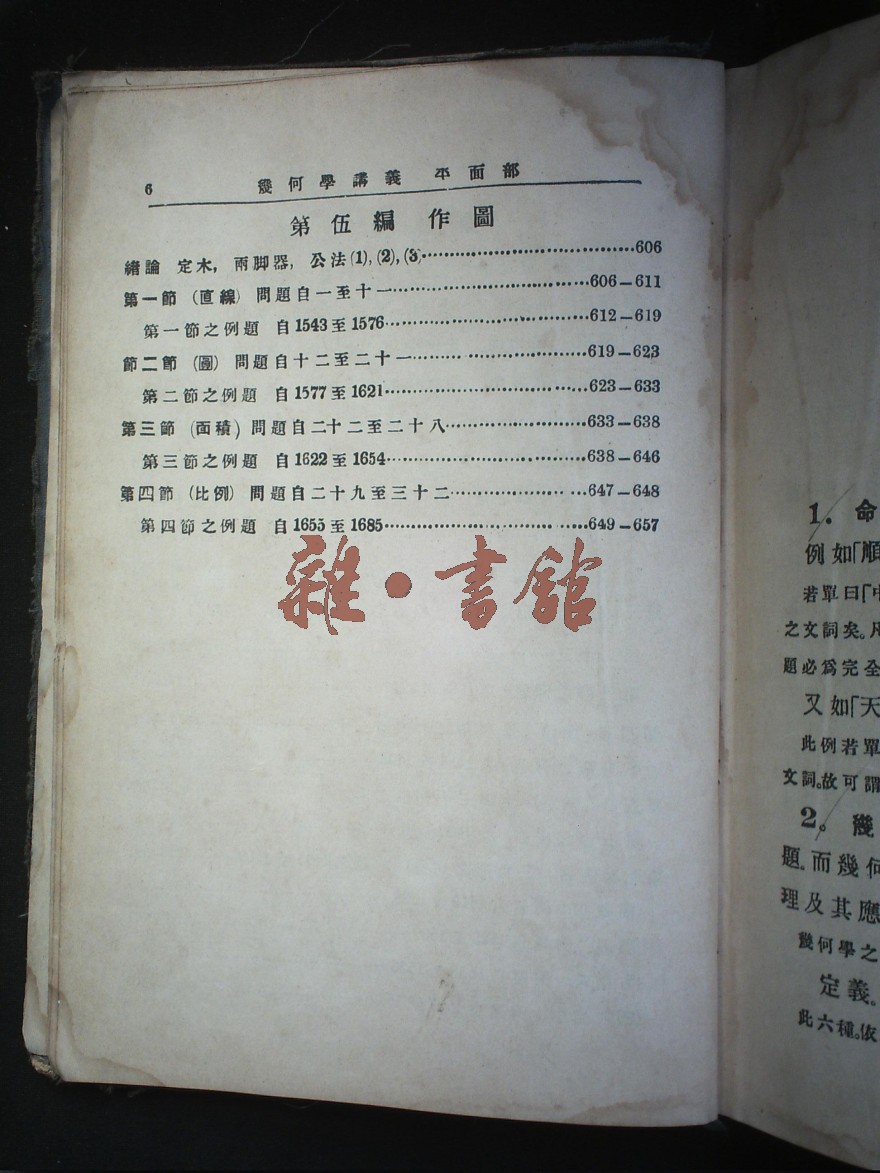 6 幾何學講義 平面部
第伍編 作圖
緖論 定木, 兩脚器, 公法(1), (2), (3)………606
第一節 (直線) 問題自一至十一………606—611
第一節之例題 自1543至1576………612—619
節二節 (圓) 問題自十二至二十一………619—623
第二節之例題 自1577至1621………623—633
第三節 (面積) 問題自二十二至二十八………633—638
第三節之例題 自1622至1654………638—646
第四節 (比例) 問題自二十九至三十二………647—648
第四節之例題 自1655至1685………649—657
雜·書館
1. 命
例如「順
若單曰「中
之文詞矣。凡
題必爲完全
又如「天
此例若單
文詞。故可謂
2。幾
題。而幾何
理及其應
幾何學之
定義。
此六種。依